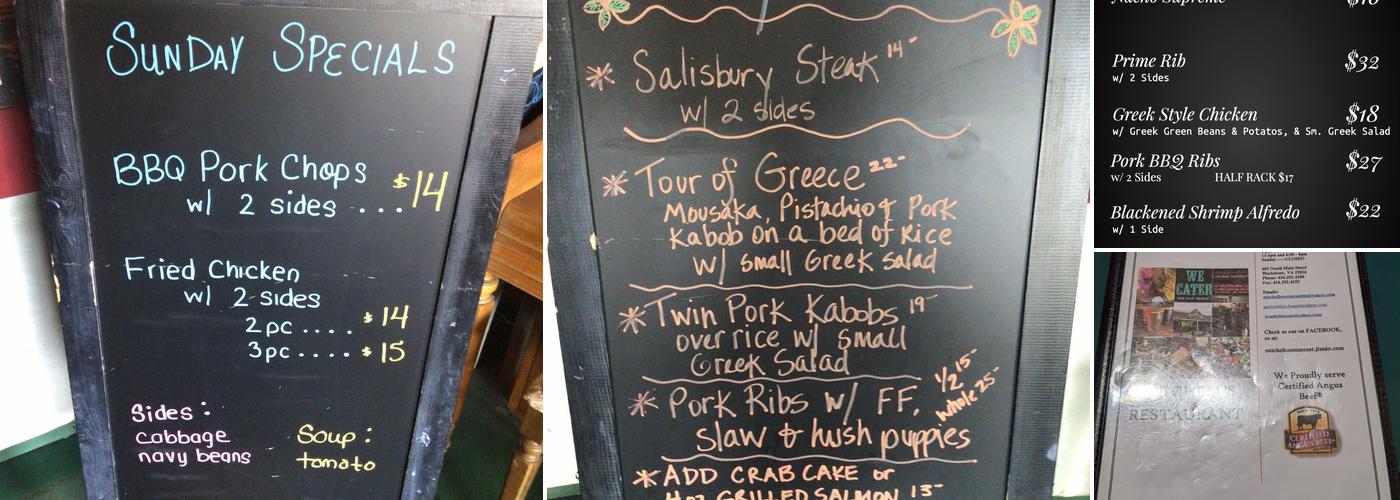 SUNDAY SPECIALS
BBQ Pork Chops
w/ 2 sides ... $14
Fried Chicken
w/ 2 sides
2pc .... $14
3pc .... $15
Sides:
cabbage
navy beans
Soup:
tomato
* Salisbury Steak 14-
w/ 2 sides
* Tour of Greece 22-
Mousaka, Pistachio & Pork
Kabob on a bed of Rice
w/ small Greek salad
* Twin Pork Kabobs 19-
over rice w/ small
Greek Salad
* Pork Ribs w/ FF, 1/2 15-
whole 25-
slaw & hush puppies
* ADD CRAB CAKE or
4oz GRILLED SALMON 13-
Nacho Supreme $16
Prime Rib $32
w/ 2 Sides
Greek Style Chicken $18
w/ Greek Green Beans & Potatos, & Sm. Greek Salad
Pork BBQ Ribs $27
w/ 2 Sides HALF RACK $17
Blackened Shrimp Alfredo $22
w/ 1 Side
WE
CATER
RESTAURANT
Sunday ----CLOSED
Blackstone, VA 23824
Phone: 434.292.4100
Fax: 434.292.4155
Emails:
Check us out on FACEBOOK,
or at:
mitchellsrestaurant.jimdo.com
We Proudly serve
Certified Angus
Beef®
CERTIFIED
ANGUS BEEF